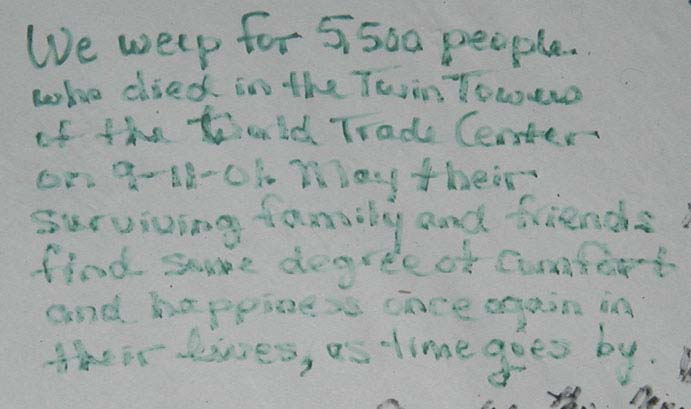 We weep for 5,500 people
who died in the Twin Towers
of the World Trade Center
on 9-11-01. May their
surviving family and friends
find some degree of comfort
and happiness once again in
their lives, as time goes by.